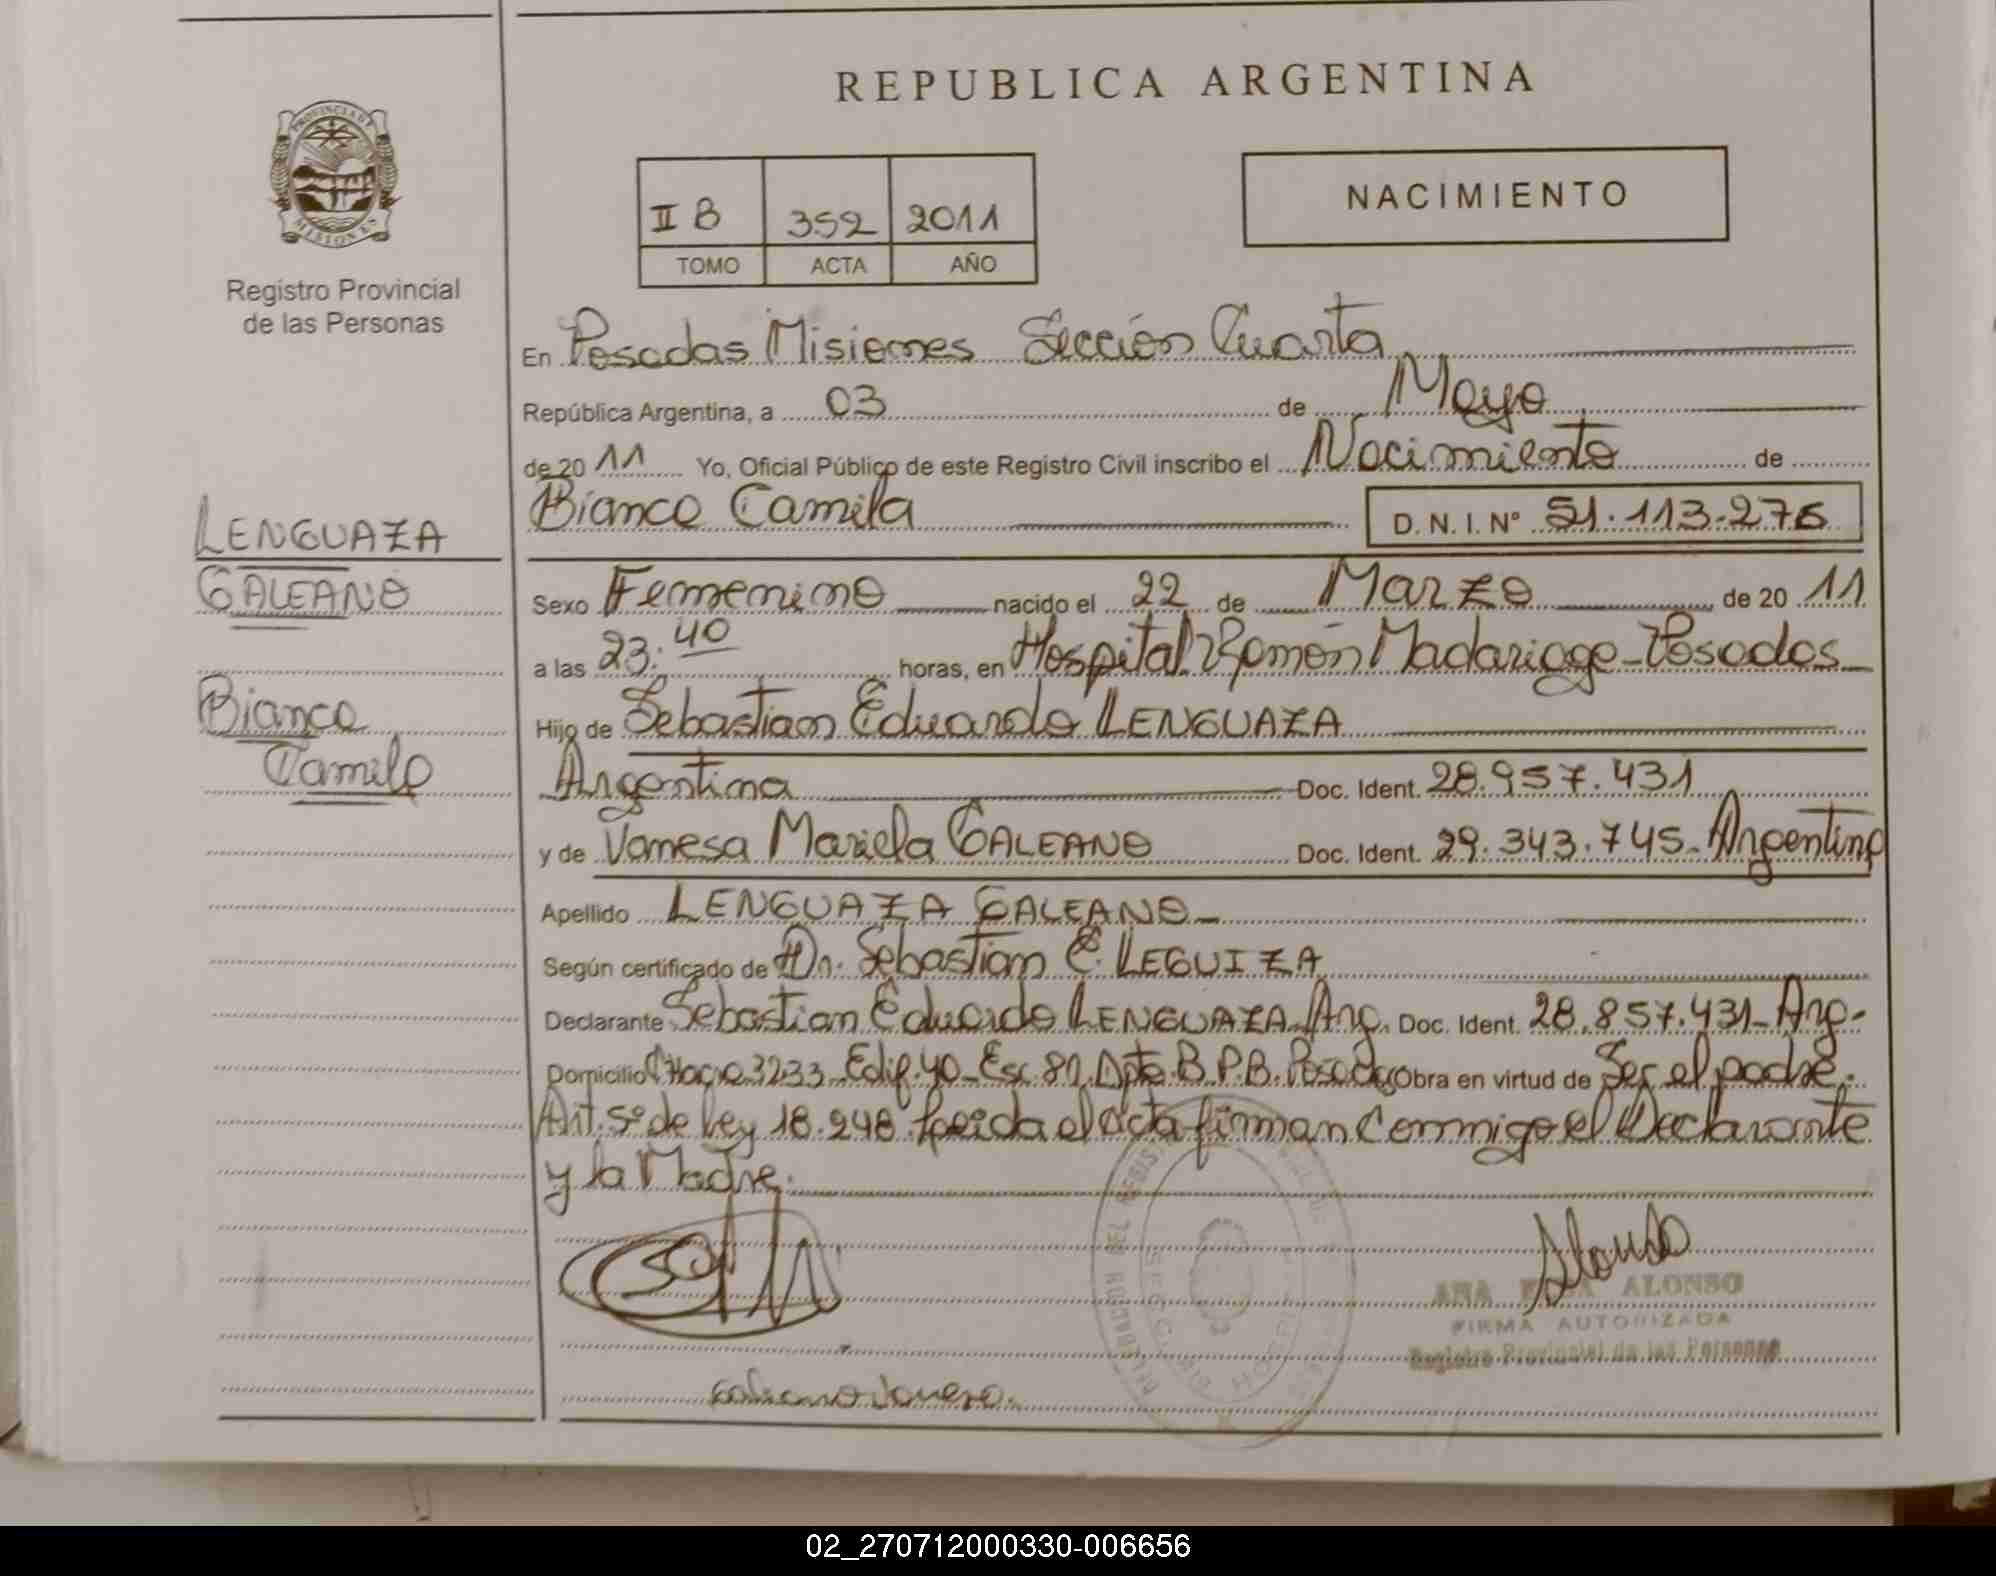 REPUBLICA ARGENTINA
II B 352 2011
TOMO ACTA AÑO
NACIMIENTO
PROVINCIA DE
MISIONES
Registro Provincial
de las Personas
LENGUAZA
GALEANO
Bianca
Camila
En Posadas Misiones Sección Cuarta
República Argentina, a 03 de Mayo
de 20 11 Yo, Oficial Público de este Registro Civil inscribo el Nacimiento de
Bianca Camila D.N.I. Nº 51.113.276
Sexo Femenino nacido el 22 de Marzo de 20 11
a las 23:40 horas, en Hospital Ramón Madariaga - Posadas
Hijo de Sebastian Eduardo LENGUAZA
Argentina Doc. Ident. 28.957.431
y de Vanesa Mariela GALEANO Doc. Ident. 29.343.745 - Argentina
Apellido LENGUAZA GALEANO
Según certificado de Dr. Sebastian E. LEGUIZA
Declarante Sebastian Eduardo LENGUAZA Arg. Doc. Ident. 28.857.431 - Arg.
Domicilio 3233 Edif. 40 - Esc. 81 Dpto. B P.B. Posadas Obra en virtud de Ser el padre.
Art. 5º de Ley 18.248 Leida el acta firman Conmigo el Declarante
y la Madre.
ALONSO
FIRMA AUTORIZADA
Registro Provincial de las Personas
02_270712000330-006656